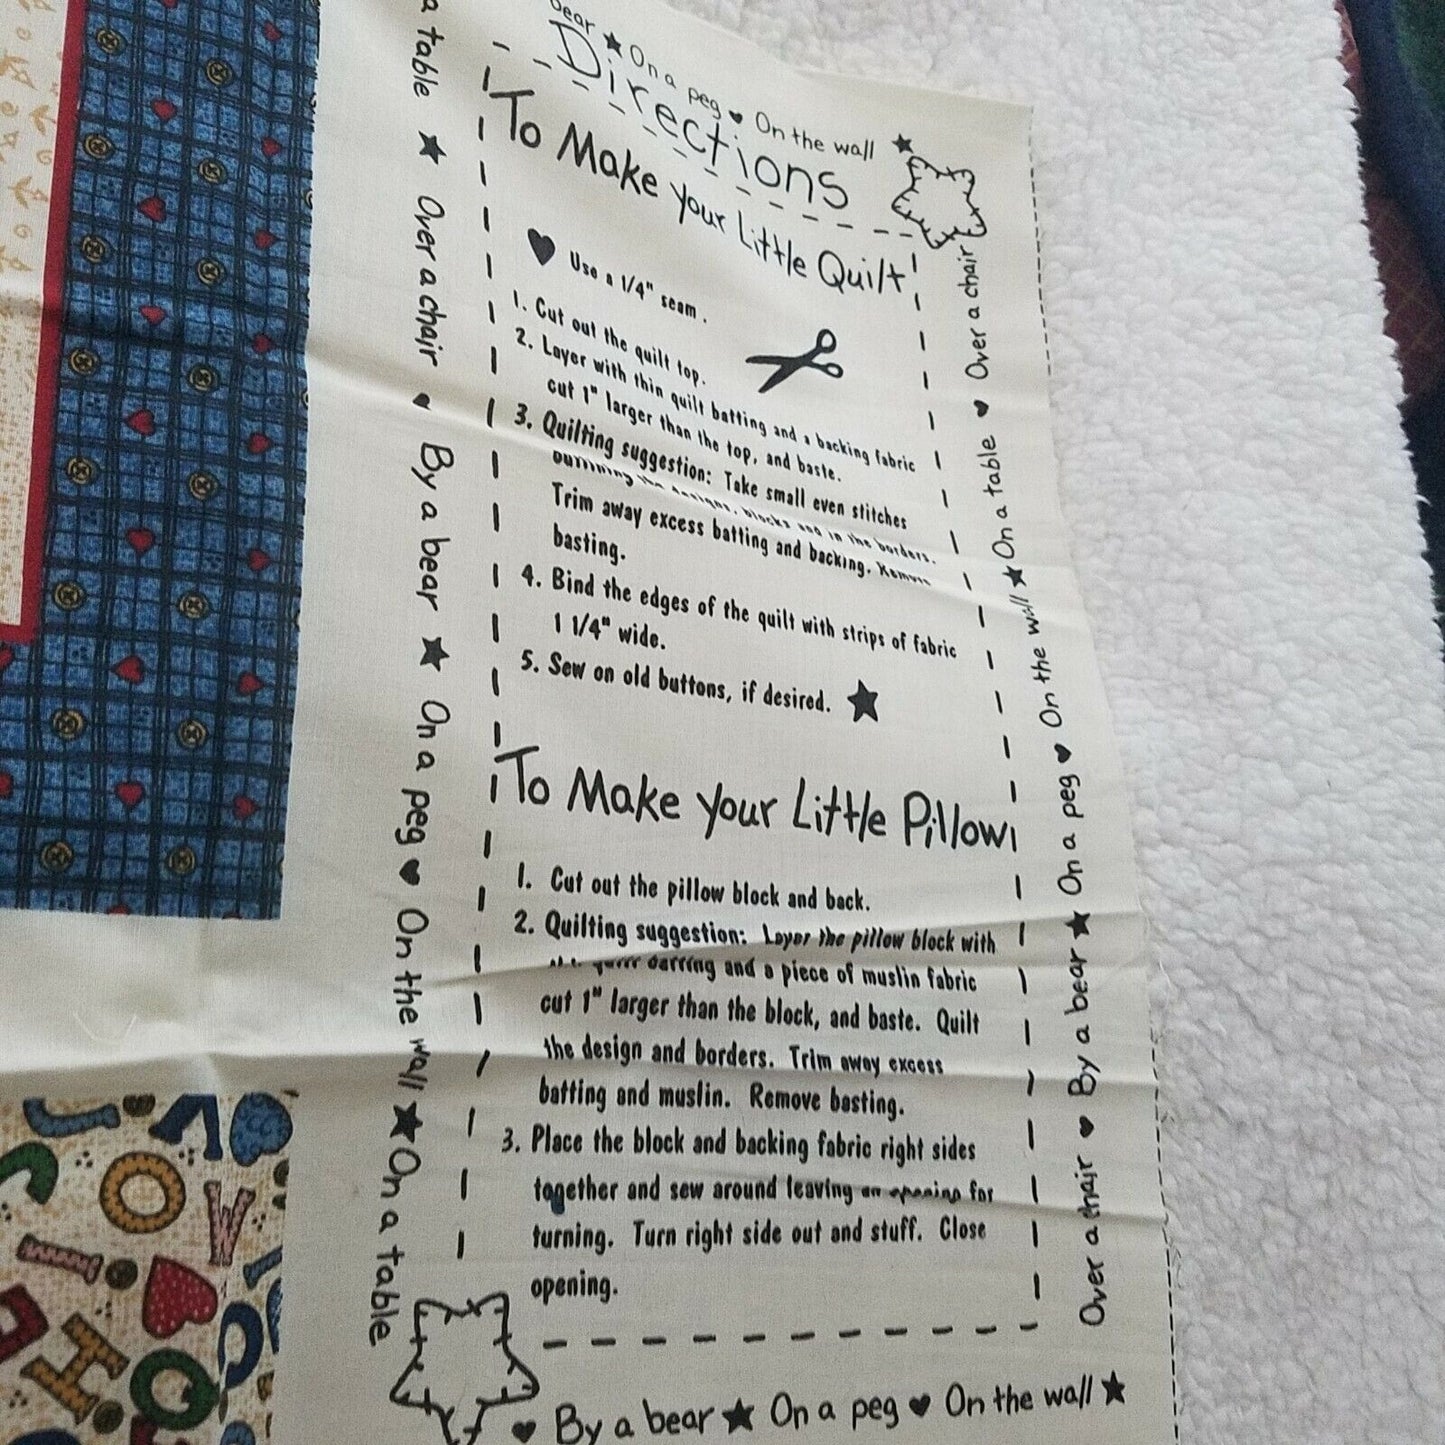 bear ★ On a peg ♥ On the wall ★
Directions
To Make your Little Quilt
♥ Use a 1/4" seam.
1. Cut out the quilt top.
2. Layer with thin quilt batting and a backing fabric
cut 1" larger than the top, and baste.
3. Quilting suggestion: Take small even stitches
the designs, blocks and in the borders.
Trim away excess batting and backing. Remove
basting.
4. Bind the edges of the quilt with strips of fabric
1 1/4" wide.
5. Sew on old buttons, if desired. ★
To Make your Little Pillow
1. Cut out the pillow block and back.
2. Quilting suggestion: Layer the pillow block with
quilt batting and a piece of muslin fabric
cut 1" larger than the block, and baste. Quilt
the design and borders. Trim away excess
batting and muslin. Remove basting.
3. Place the block and backing fabric right sides
together and sew around leaving an opening for
turning. Turn right side out and stuff. Close
opening.
a table ★ Over a chair ♥ By a bear ★ On a peg ♥ On the wall ★ On a table
Over a chair ♥ By a bear ★ On a peg ♥ On the wall ★ On a table ♥ Over a chair
♥ By a bear ★ On a peg ♥ On the wall ★